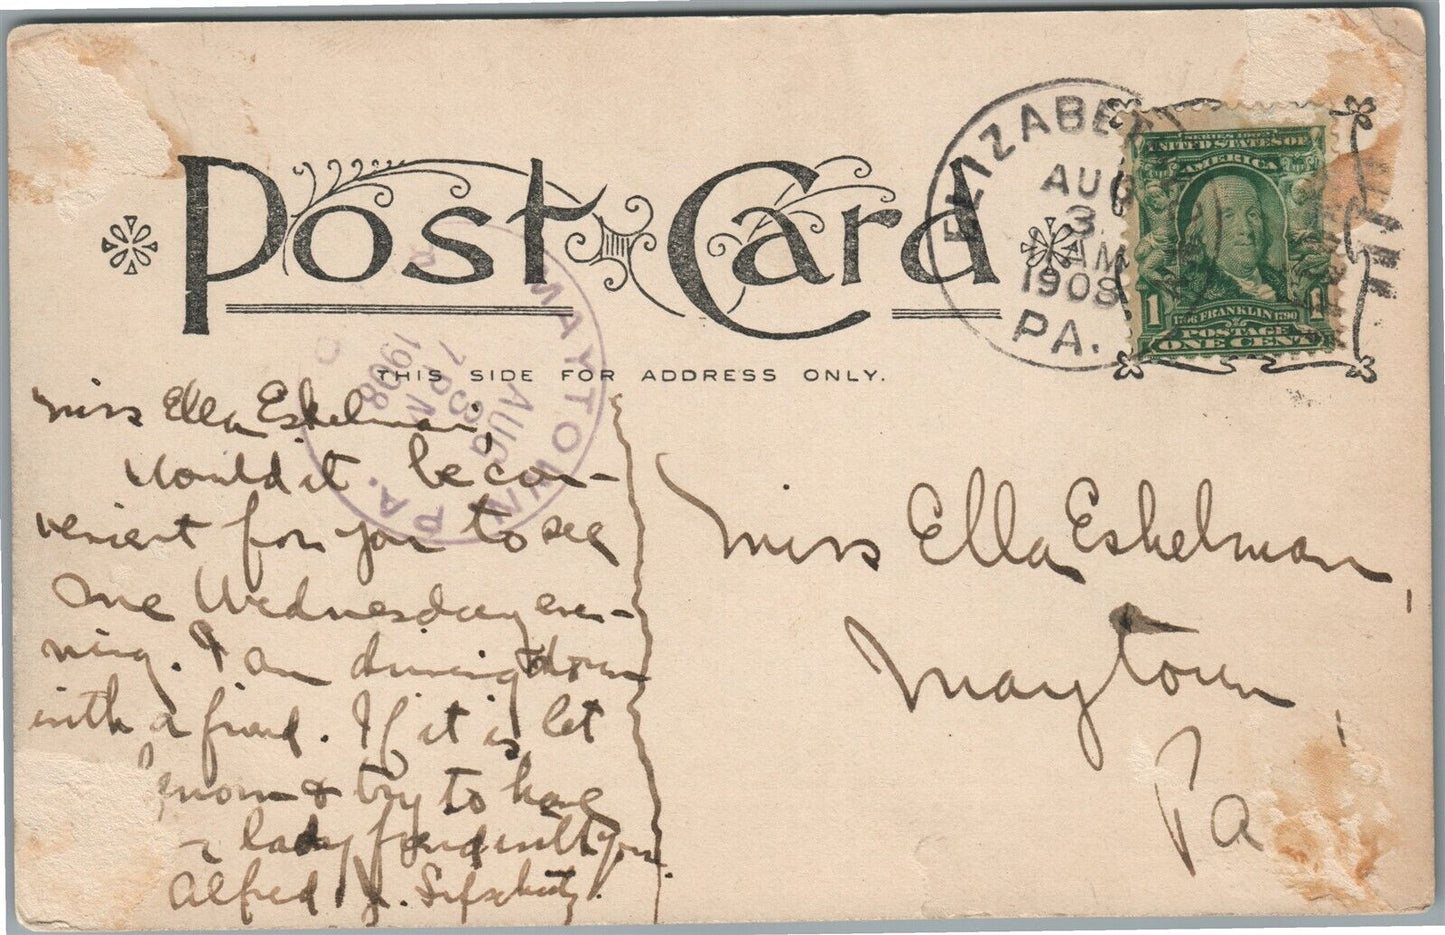 Post Card
THIS SIDE FOR ADDRESS ONLY.
ELIZABETHT
AUG
3
AM
1908
PA.
SERIES 1902
UNITED STATES OF
AMERICA
1 1
1706 FRANKLIN 1790
POSTAGE
ONE CENT
MAYTOWN PA.
AUG
3
7 PM
1908
Miss Ella Eshelman,
Would it be con-
venient for you to see
me Wednesday eve-
ning. I am driving down
with a friend. If it is let
know & try to have
a lady friend with you.
Alfred
Miss Ella Eshelman,
Maytown,
Pa